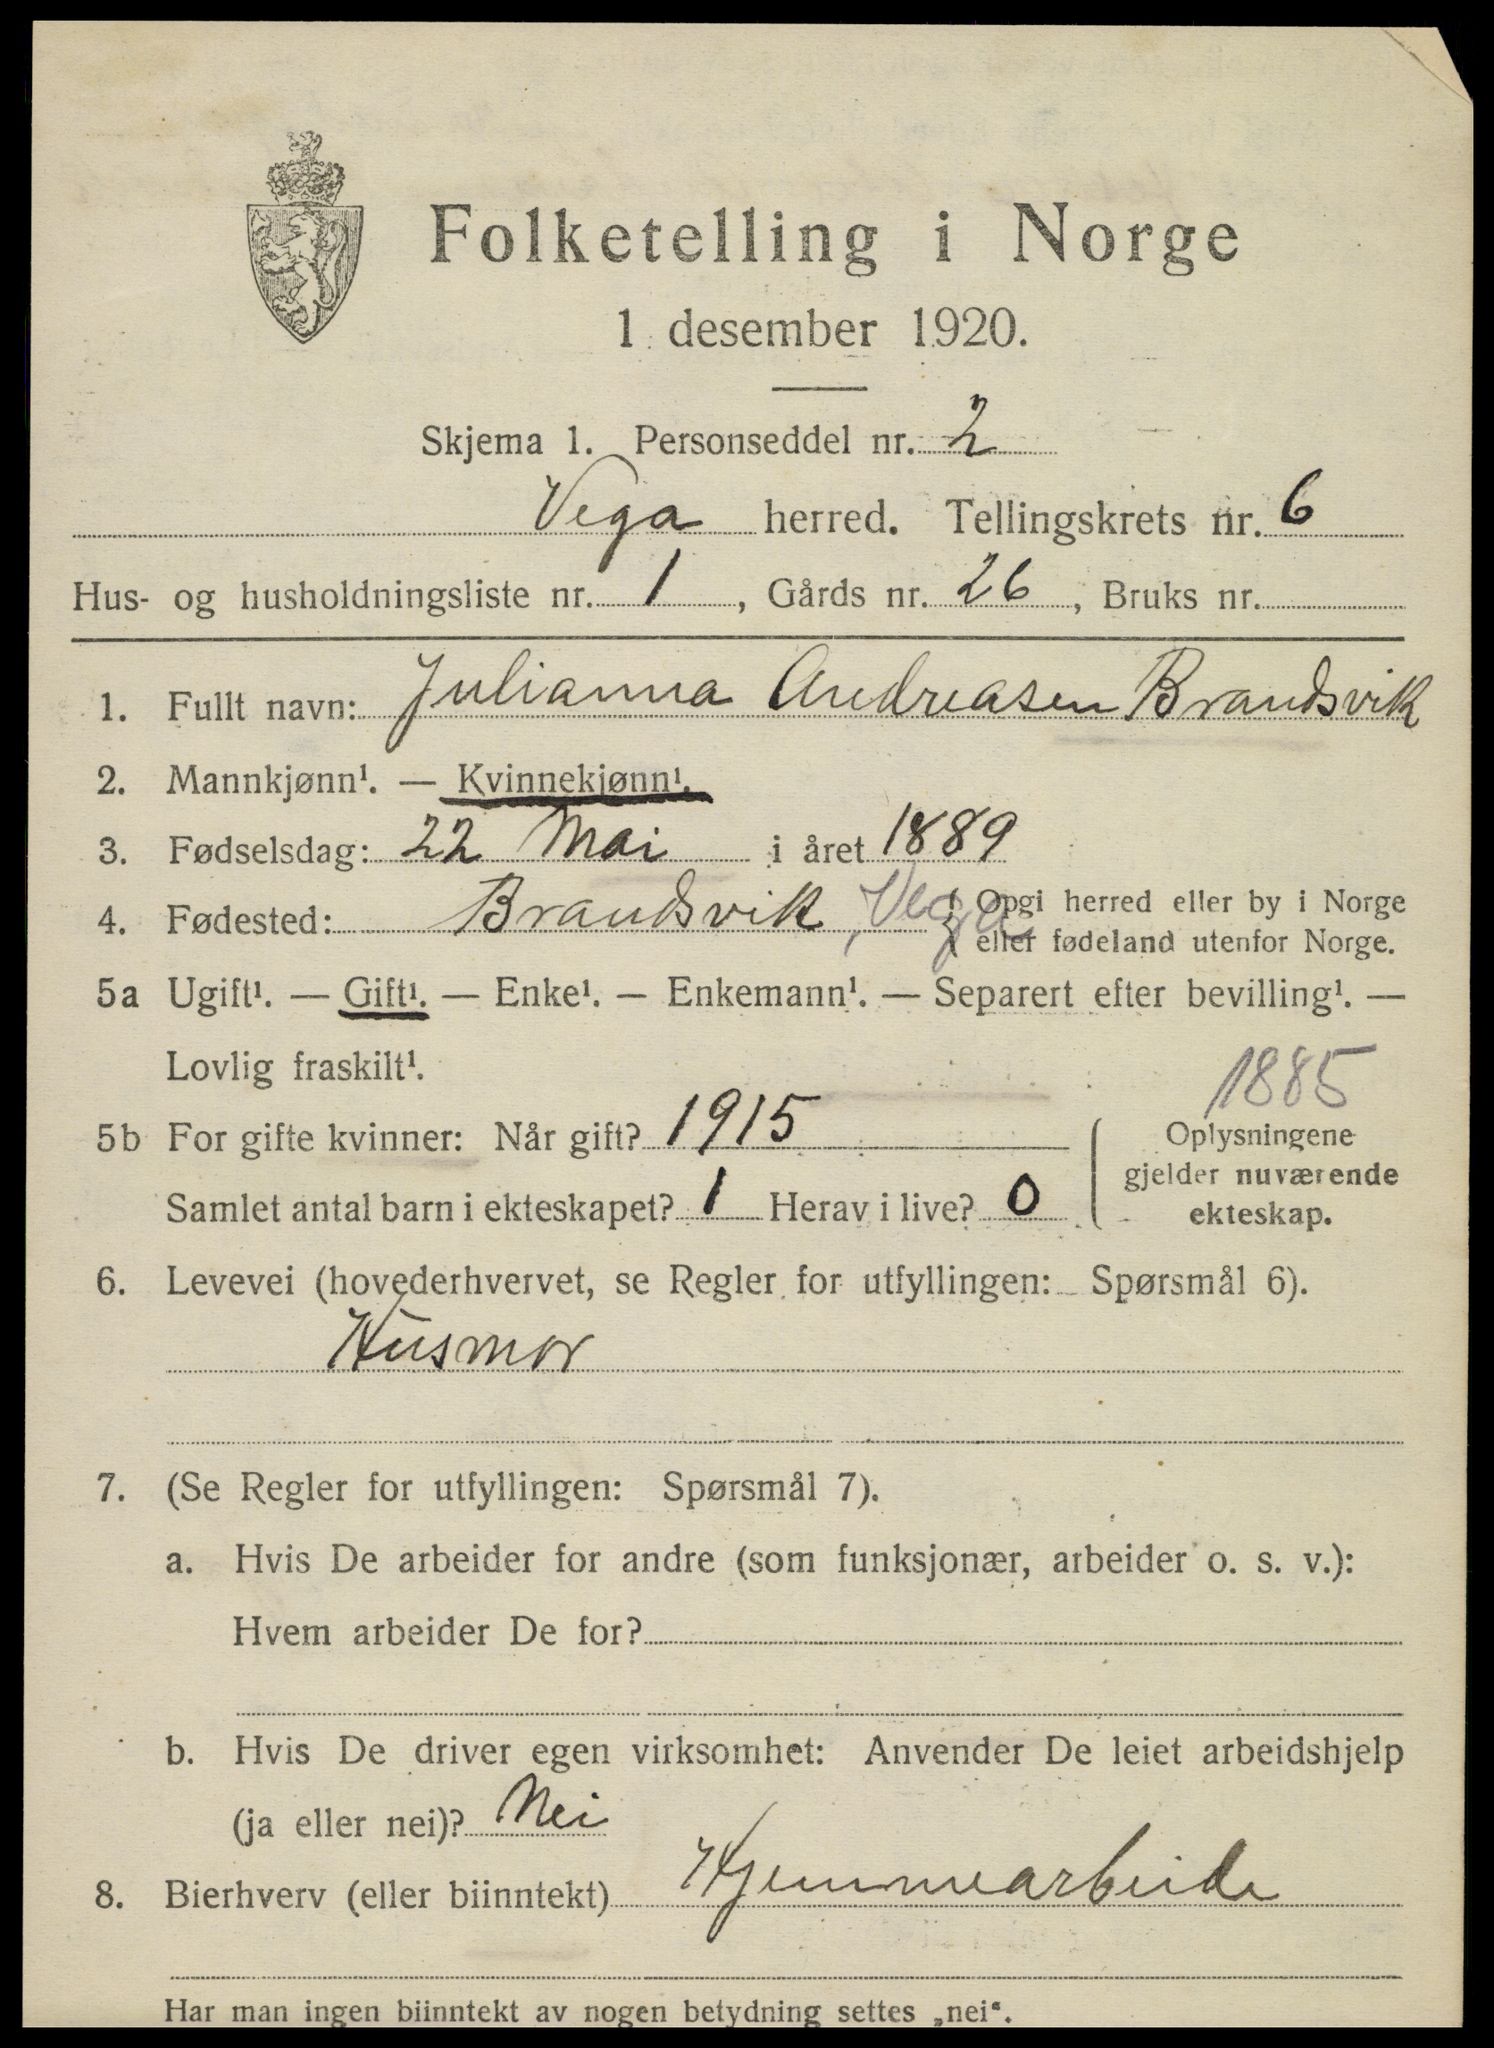 Folketelling i Norge
1 desember 1920.
Skjema 1. Personseddel nr. 2
Vega herred. Tellingskrets nr. 6
Hus- og husholdningsliste nr. 1, Gårds nr. 26, Bruks nr.
1. Fullt navn: Julianna Andreasen Brandsvik
2. Mannkjønn¹. — Kvinnekjønn¹.
3. Fødselsdag: 22 Mai i året 1889
4. Fødested: Brandsvik, Vega { Opgi herred eller by i Norge
eller fødeland utenfor Norge.
5a Ugift¹. — Gift¹. — Enke¹. — Enkemann¹. — Separert efter bevilling¹. —
Lovlig fraskilt¹.
1885
5b For gifte kvinner: Når gift? 1915
Samlet antal barn i ekteskapet? 1 Herav i live? 0
Oplysningene
gjelder nuværende
ekteskap.
6. Levevei (hovederhvervet, se Regler for utfyllingen: Spørsmål 6).
Husmor
7. (Se Regler for utfyllingen: Spørsmål 7).
a. Hvis De arbeider for andre (som funksjonær, arbeider o. s. v.):
Hvem arbeider De for?
b. Hvis De driver egen virksomhet: Anvender De leiet arbeidshjelp
(ja eller nei)? Nei
8. Bierhverv (eller biinntekt) Hjemmearbeide
Har man ingen biinntekt av nogen betydning settes „nei“.